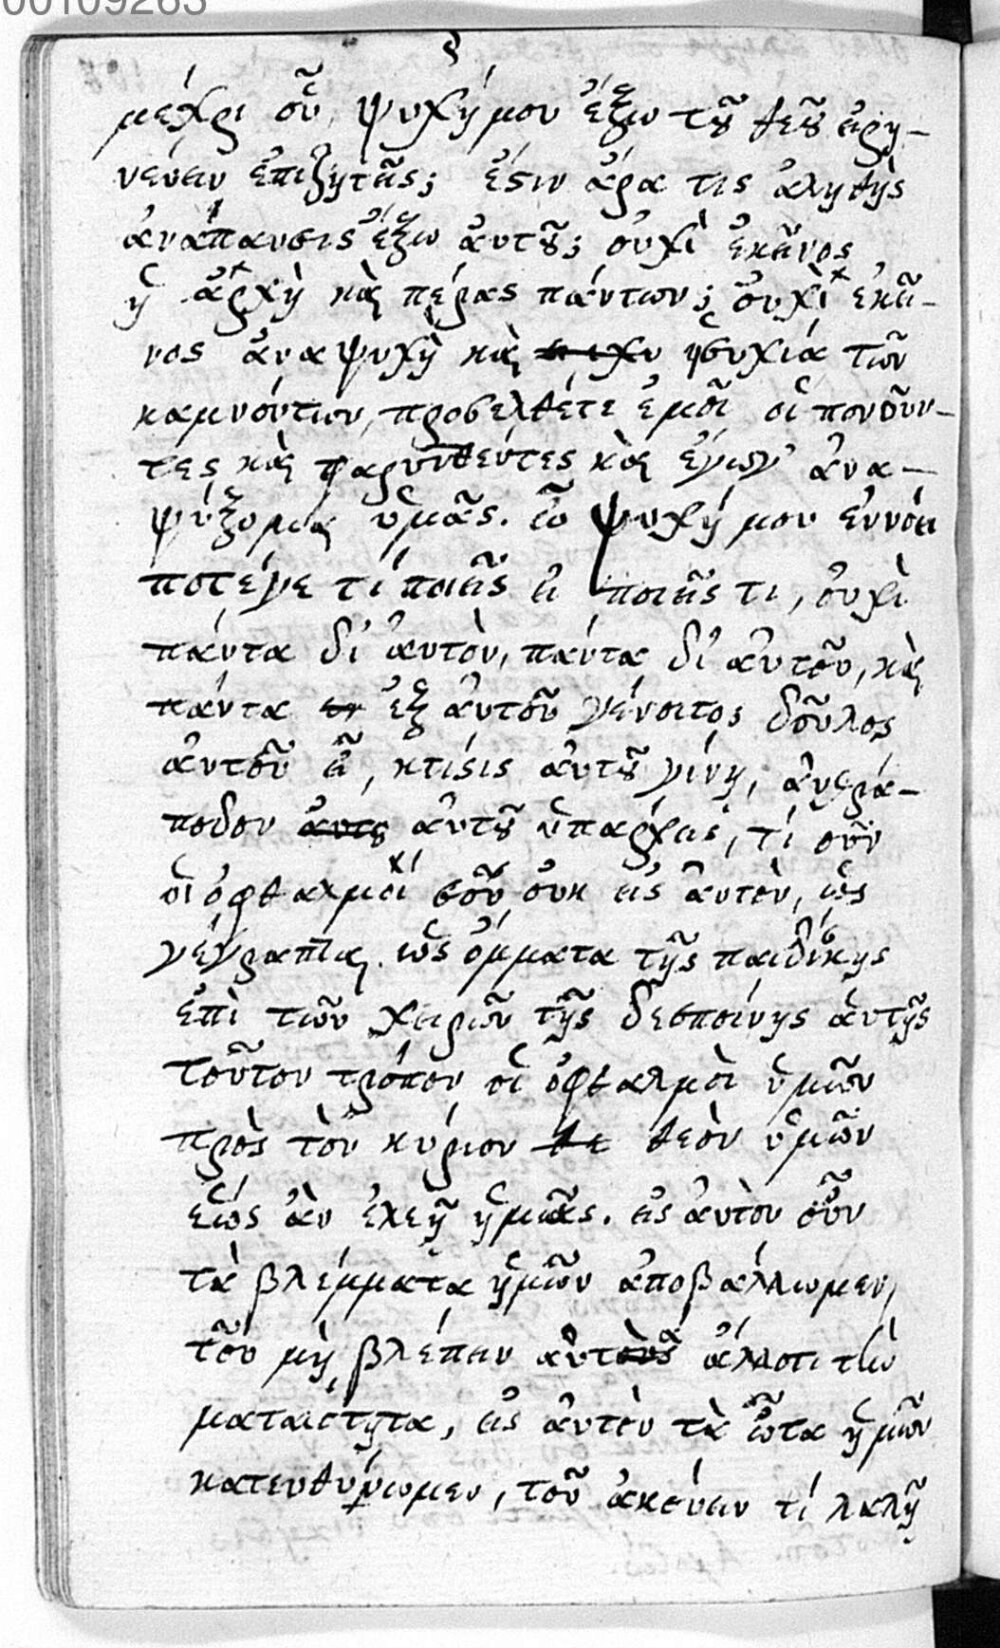 00109263
μέχρι οὗ, ψυχή μου ἔξω τοῦ θεοῦ εἰρη-
νεύειν ἐπιζητεῖς; ἔστιν ἄρα τις ἀληθὴς
ἀνάπαυσις ἔξω ἀυτοῦ; οὐχὶ ἐκεῖνος
ἡ ἀρχὴ καὶ πέρας πάντων; οὐχὶ ἐκεῖ-
νος ἀναψυχὴ καὶ ἡσυχιά τῶν
καμνόντων, προσελθέτε ἐμοῖ οἱ πονοῦν-
τες καὶ φαρυνθέντες καὶ ἔγωγ' ἀνα-
ψύξομαι ὑμᾶς. ὦ ψυχή μου ἐννόει
ποτέγε τί ποιεῖς εἰ ποιεῖς τι, οὐχὶ
πάντα δι' ἀυτὸν, πάντα δι' ἀυτοῦ, καὶ
πάντα ἐξ ἀυτοῦ γένοιτο; δοῦλος
ἀυτοῦ εἶ, κτίσις ἀυτοῦ γίνῃ, ἀνδρά-
ποδον ἀυτοῦ ὑπαρχεις, τί οὖν
οἱ ὀφθαλμοί σοῦ οὐκ εἰς ἀυτὸν, ὡς
γέγραπται. ὡς ὄμματα τῆς παιδίσκης
ἐπὶ τῶν χειρῶν τῆς δεσποίνης ἀυτῆς
τοῦτον τρόπον οἱ ὀφθαλμὸι ὑμῶν
πρὸς τὸν κύριον θεὸν ὑμῶν
ἕως ἂν ἐλεῇ ἡμᾶς. εἰς ἀυτὸν οὖν
τὰ βλέμματα ἡμῶν ἀποβάλλωμεν,
τοῦ μὴ βλέπειν ἄλλοτι τὼ
ματαιοτητα, εἰς ἀυτὸν τὰ ὦτα ἡμῶν
κατευθυρωμεν, τοῦ ἀκούειν τί λαλῇ